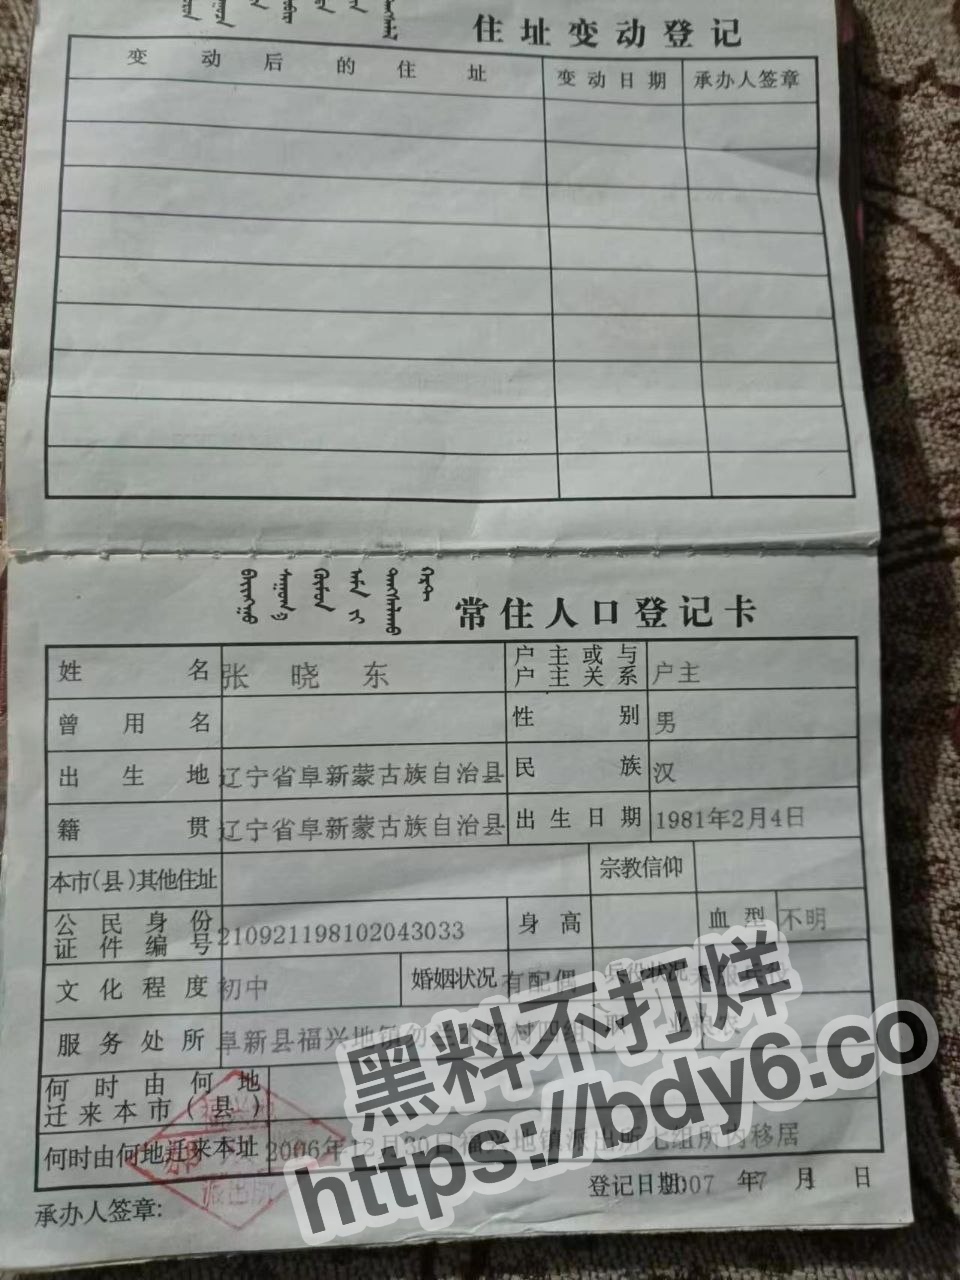 住址变动登记
变动后的住址 变动日期 承办人签章
常住人口登记卡
姓名 张晓东 户主或与户主关系 户主
曾用名 性别 男
出生地 辽宁省阜新蒙古族自治县 民族 汉
籍贯 辽宁省阜新蒙古族自治县 出生日期 1981年2月4日
本市(县)其他住址 宗教信仰
公民身份证件编号 210921198102043033 身高 血型 不明
文化程度 初中 婚姻状况 有配偶 兵役状况
服务处所 阜新县福兴地镇 村四组 职业
何时由何地迁来本市(县)
何时由何地迁来本址 2006年12月30日福兴地镇派出所七组所内移居
登记日期 2007年7月 日
承办人签章:
派出所
黑料不打烊
https://bdy6.co